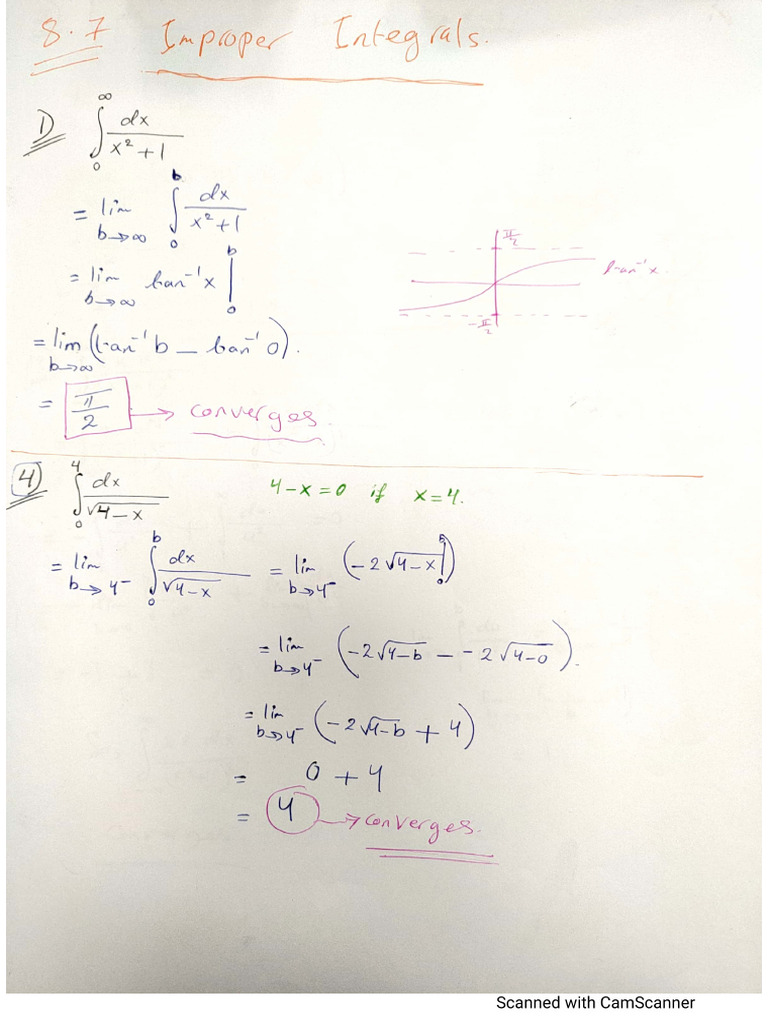 8.7 Improper Integrals.
1) ∫₀^∞ dx/(x²+1)
= lim b→∞ ∫₀^b dx/(x²+1)
= lim b→∞ tan⁻¹x |₀^b
= lim b→∞ (tan⁻¹b − tan⁻¹0).
= π/2 → converges.
π/2
tan⁻¹x.
−π/2
4) ∫₀^4 dx/√(4−x) 4−x=0 if x=4.
= lim b→4⁻ ∫₀^b dx/√(4−x) = lim b→4⁻ (−2√(4−x) |₀^b)
= lim b→4⁻ (−2√(4−b) − −2√(4−0)).
= lim b→4⁻ (−2√(4−b) + 4)
= 0 + 4
= 4 → converges.
Scanned with CamScanner